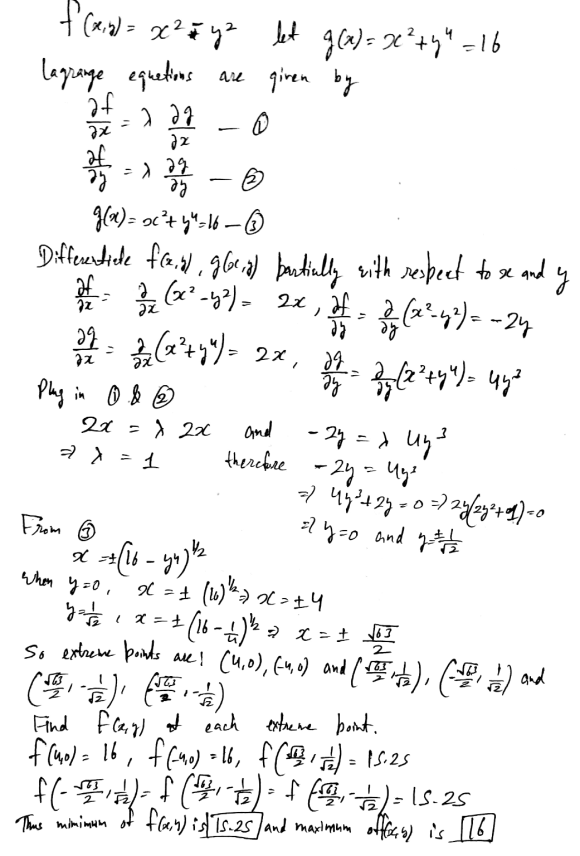 f(x,y) = x² - y² let g(x) = x² + y⁴ = 16
Lagrange equations are given by
∂f/∂x = λ ∂g/∂x — ①
∂f/∂y = λ ∂g/∂y — ②
g(x) = x² + y⁴ = 16 — ③
Differentiate f(x,y), g(x,y) partially with respect to x and y
∂f/∂x = ∂/∂x (x² - y²) = 2x, ∂f/∂y = ∂/∂y (x² - y²) = -2y
∂g/∂x = ∂/∂x (x² + y⁴) = 2x, ∂g/∂y = ∂/∂y (x² + y⁴) = 4y³
Plug in ① & ②
2x = λ 2x and -2y = λ 4y³
⇒ λ = 1 therefore -2y = 4y³
⇒ 4y³ + 2y = 0 ⇒ 2y(2y² + 1) = 0
⇒ y = 0 and y = ± 1/√2
From ③
x = ±(16 - y⁴)^1/2
when y = 0, x = ± (16)^1/2 ⇒ x = ± 4
y = 1/√2, x = ± (16 - 1/4)^1/2 ⇒ x = ± √63/2
So extreme points are: (4,0), (-4,0) and (√63/2, 1/√2), (-√63/2, 1/√2) and
(√63/2, -1/√2), (-√63/2, -1/√2)
Find f(x,y) at each extreme point.
f(4,0) = 16, f(-4,0) = 16, f(√63/2, 1/√2) = 15.25
f(-√63/2, 1/√2) = f(√63/2, -1/√2) = f(-√63/2, -1/√2) = 15.25
Thus minimum of f(x,y) is 15.25 and maximum of f(x,y) is 16